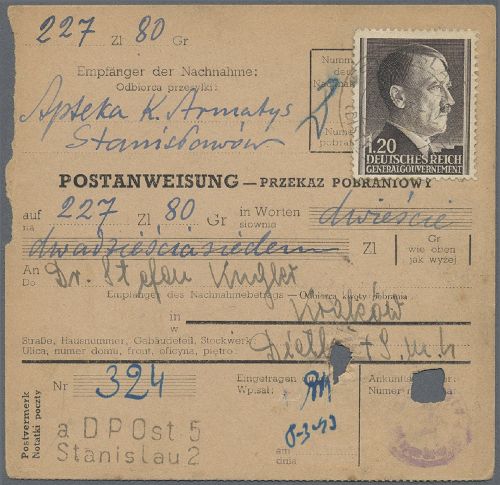 227 Zl 80 Gr
Empfänger der Nachnahme:
Odbiorca przesyłki:
Apteka K. Armatys
Stanisławów
Numm
der
Nachna
Numer
pobran
1.20
DEUTSCHES REICH
GENERALGOUVERNEMENT
POSTANWEISUNG — PRZEKAZ POBRANIOWY
auf
na
227 Zl 80 Gr in Worten
słownie
dwieście
dwadzieścia siedem Zl
Gr
wie oben
jak wyżej
An
Do
Dr. Stefan
Empfänger des Nachnahmebetrags — Odbiorca kwoty pobrania
in
w
Kraków
Straße, Hausnummer, Gebäudeteil, Stockwerk
Ulica, numer domu, front, oficyna, piętro:
Nr 324
Eingetragen
Wp.sat.
Ankunfts
Numer
Postvermerk
Notatki poczty
a DPOst 5
Stanislau 2
am
dnia